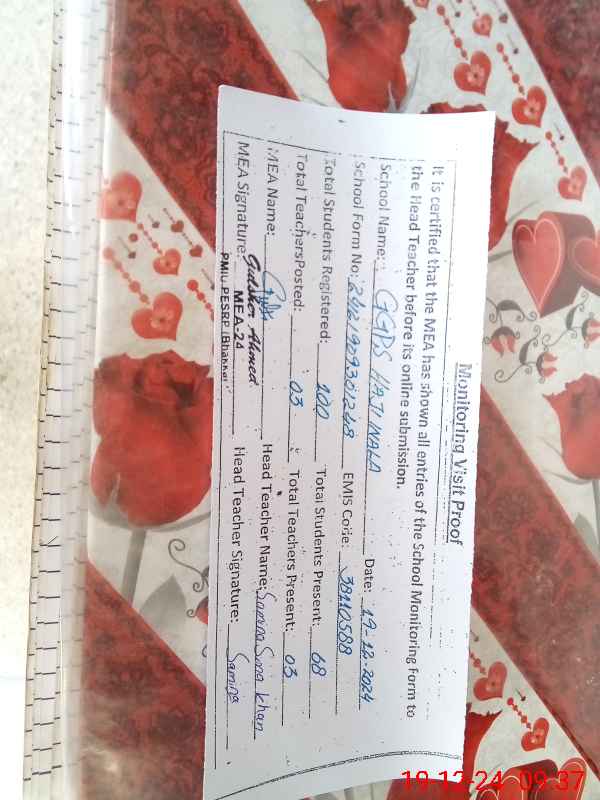 Monitoring Visit Proof
It is certified that the MEA has shown all entries of the School Monitoring Form to
the Head Teacher before its online submission.
School Name: GGPS HAJI WALA Date: 19-12-2024
School Form No: 24121909301248 EMIS Code: 38110588
Total Students Registered: 100 Total Students Present: 68
Total TeachersPosted: 03 Total Teachers Present: 03
MEA Name: Head Teacher Name: Samina Sona Khan
Gulsher Ahmed
MEA Signature: MEA-24 Head Teacher Signature: Samina
PMIU-PESRP (Bhakkar)
19-12-24 09:37